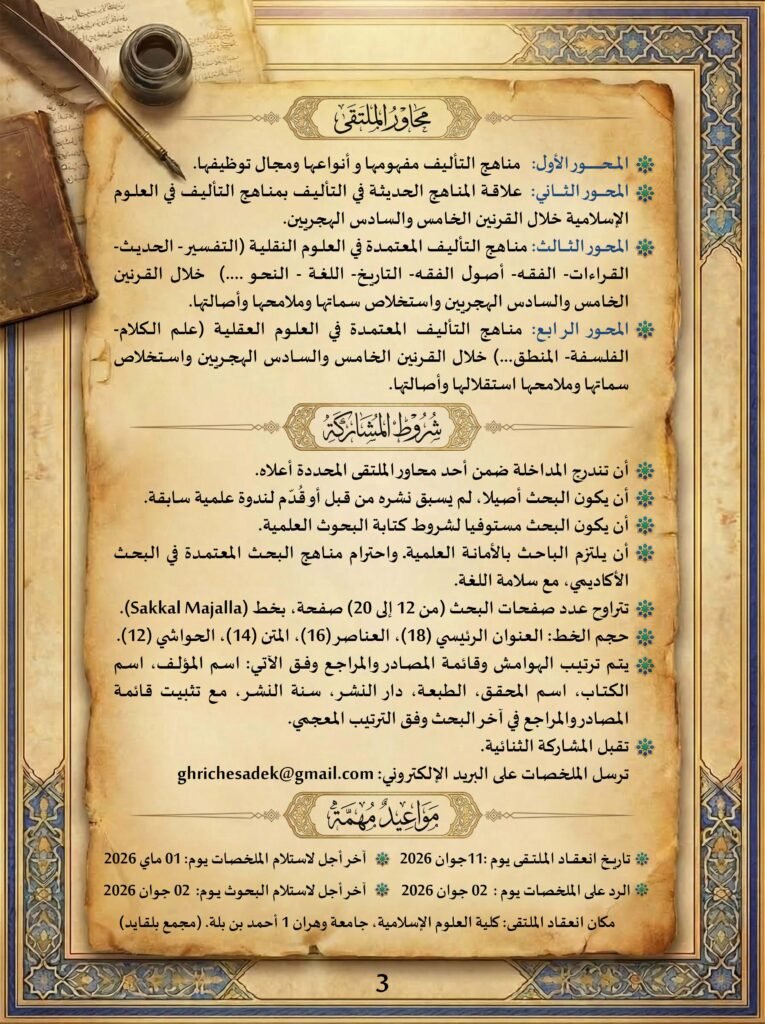 مَحَاوِرُ المُلْتَقَى
المحــور الأول: مناهج التأليف مفهومها و أنواعها ومجال توظيفها.
المحـور الثـاني: علاقـة المناهج الحديثة في التأليف بمناهج التأليف في العلـوم
الإسلامية خلال القرنين الخامس والسادس الهجريين.
المحـور الثـالـث: مناهج التأليف المعتمدة في العلـوم النقلية (التفسير- الحديث-
القراءات- الفقه- أصول الفقه- التاريخ- اللغة - النحو ....) خلال القرنين
الخامس والسادس الهجريين واستخلاص سماتها وملامحها وأصالتها.
المحور الرابع: مناهج التأليف المعتمدة في العلـوم العقلية (علم الكلام-
الفلسفة- المنطق...) خلال القرنين الخامس والسادس الهجريين واستخلاص
سماتها وملامحها استقلالها وأصالتها.
شُرُوطُ المُشَارَكَةِ
أن تندرج المداخلة ضمن أحد محاور الملتقى المحددة أعلاه.
أن يكون البحث أصيلا، لم يسبق نشره من قبل أو قُدّم لندوة علمية سابقة.
أن يكون البحث مستوفيا لشروط كتابة البحوث العلمية.
أن يلتزم الباحث بالأمانة العلمية. واحترام مناهج البحث المعتمدة في البحث
الأكاديمي، مع سلامة اللغة.
تتراوح عدد صفحات البحث (من 12 إلى 20) صفحة، بخط (Sakkal Majalla).
حجم الخط: العنوان الرئيسي (18)، العناصر (16)، المتن (14)، الحواشي (12).
يتم ترتيب الهوامش وقائمة المصادر والمراجع وفق الآتي: اسم المؤلف، اسم
الكتاب، اسم المحقق، الطبعة، دار النشر، سنة النشر، مع تثبيت قائمة
المصادر والمراجع في آخر البحث وفق الترتيب المعجمي.
تقبل المشاركة الثنائية.
ترسل الملخصات على البريد الإلكتروني: ghrichesadek@gmail.com
مَوَاعِيدٌ مُهِمَّة
تاريخ انعقاد الملتقى يوم :11جوان 2026 آخر أجل لاستلام الملخصات يوم: 01 ماي 2026
الرد على الملخصات يوم : 02 جوان 2026 آخر أجل لاستلام البحوث يوم: 02 جوان 2026
مكان انعقاد الملتقى: كلية العلوم الإسلامية، جامعة وهران 1 أحمد بن بلة. (مجمع بلقايد)
3